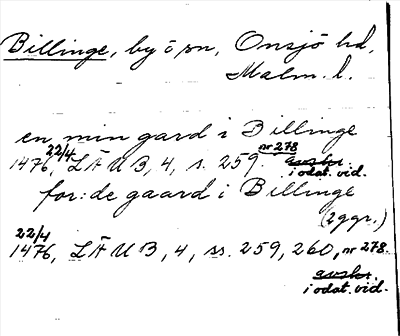 Billinge, by o sn, Onsjö hd,
Malm. l.
en min gard i Billinge
22/4 nr 278
1476, LÄUB, 4, s. 259. avskr.
i odat. vid.
for:de gaard i Billinge
(2ggr.)
22/4
1476, LÄUB, 4, ss. 259, 260, nr 278.
avskr.
i odat. vid.